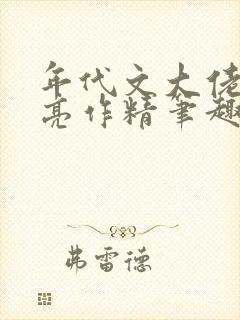 年代文大佬
亮作精笔趣
弗雷德